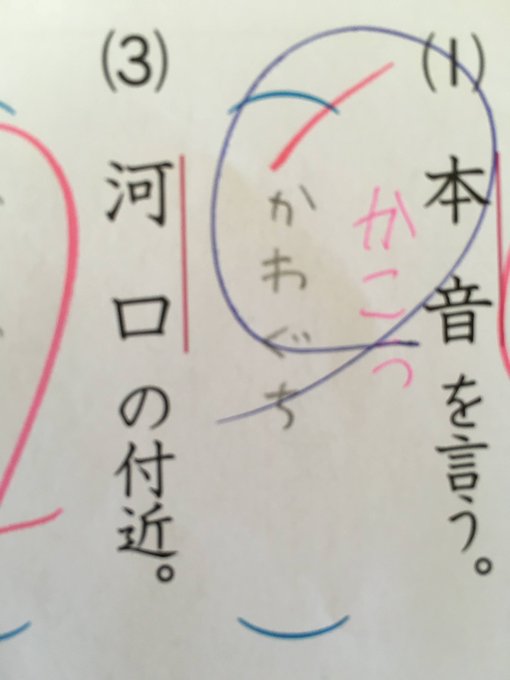 (1) 本音を言う。
かこう
かわぐち
(3) 河口の付近。